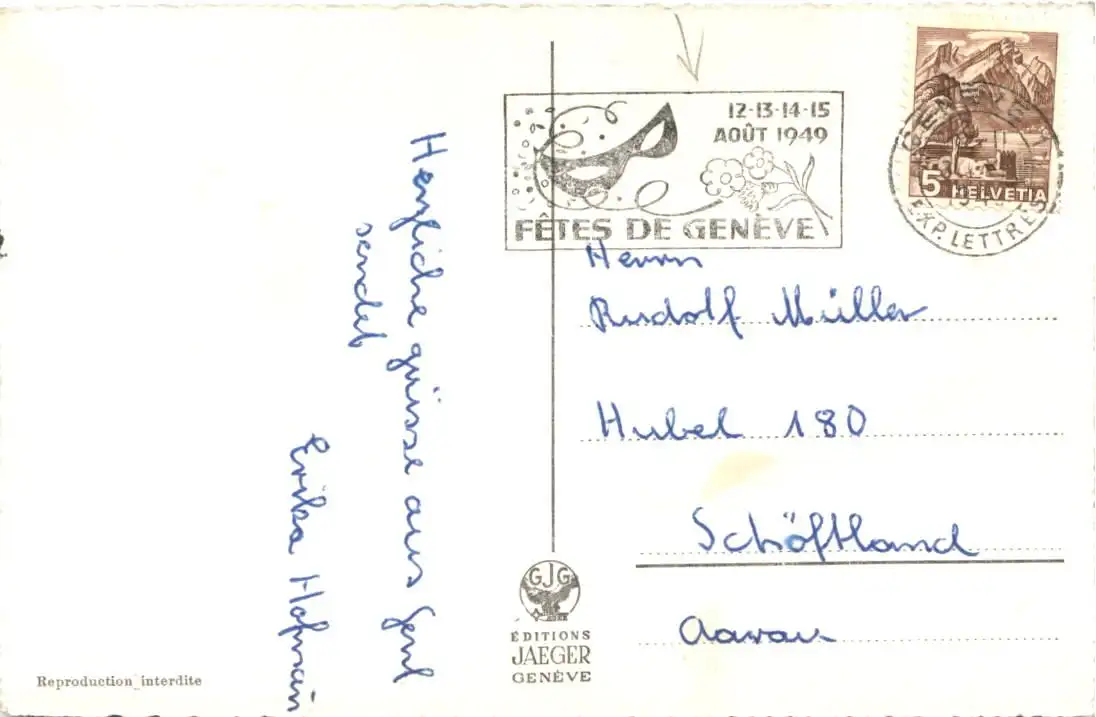 Herzliche grüsse aus Genf
sendet
Erika Hofmann
12-13-14-15
AOÛT 1949
FÊTES DE GENÈVE
GENÈVE 1
EXP. LETTRES
5 HELVETIA
Herrn
Rudolf Müller
Hubel 180
Schöftland
Aarau
GJG
ÉDITIONS
JAEGER
GENÈVE
Reproduction interdite